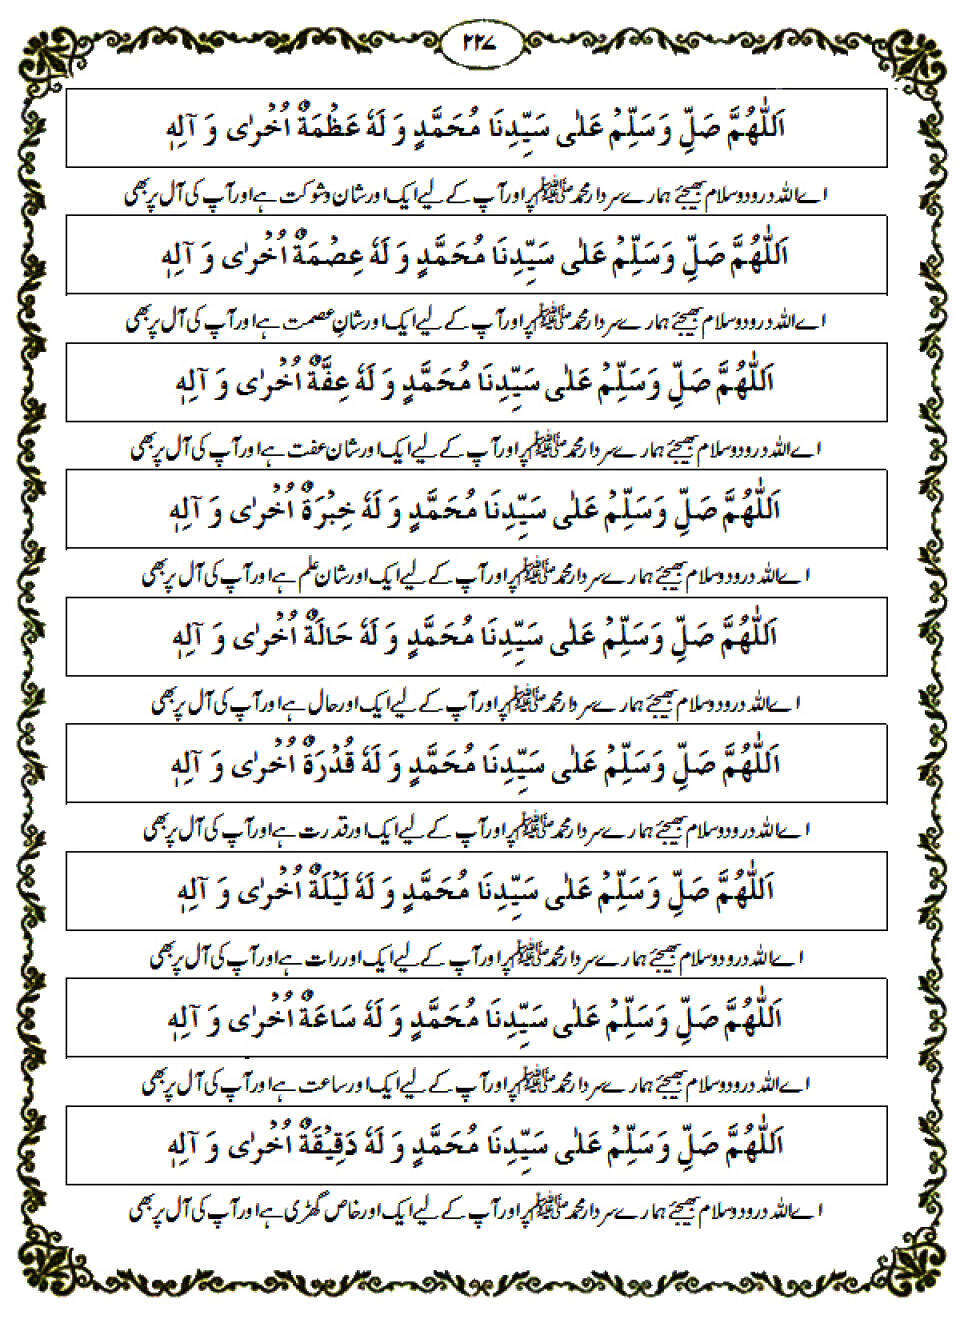 ۲۲۷
اَللّٰهُمَّ صَلِّ وَسَلِّمْ عَلٰی سَيِّدِنَا مُحَمَّدٍ وَ لَهٗ عَظْمَةٌ اُخْرٰی وَ آلِهٖ
اے اللہ درود و سلام بھیجئے ہمارے سردار محمد ﷺ پر اور آپ کے لیے ایک اور شان و شوکت ہے اور آپ کی آل پر بھی
اَللّٰهُمَّ صَلِّ وَسَلِّمْ عَلٰی سَيِّدِنَا مُحَمَّدٍ وَ لَهٗ عِصْمَةٌ اُخْرٰی وَ آلِهٖ
اے اللہ درود و سلام بھیجئے ہمارے سردار محمد ﷺ پر اور آپ کے لیے ایک اور شانِ عصمت ہے اور آپ کی آل پر بھی
اَللّٰهُمَّ صَلِّ وَسَلِّمْ عَلٰی سَيِّدِنَا مُحَمَّدٍ وَ لَهٗ عِفَّةٌ اُخْرٰی وَ آلِهٖ
اے اللہ درود و سلام بھیجئے ہمارے سردار محمد ﷺ پر اور آپ کے لیے ایک اور شان عفت ہے اور آپ کی آل پر بھی
اَللّٰهُمَّ صَلِّ وَسَلِّمْ عَلٰی سَيِّدِنَا مُحَمَّدٍ وَ لَهٗ خِبْرَةٌ اُخْرٰی وَ آلِهٖ
اے اللہ درود و سلام بھیجئے ہمارے سردار محمد ﷺ پر اور آپ کے لیے ایک اور شان علم ہے اور آپ کی آل پر بھی
اَللّٰهُمَّ صَلِّ وَسَلِّمْ عَلٰی سَيِّدِنَا مُحَمَّدٍ وَ لَهٗ حَالَةٌ اُخْرٰی وَ آلِهٖ
اے اللہ درود و سلام بھیجئے ہمارے سردار محمد ﷺ پر اور آپ کے لیے ایک اور حال ہے اور آپ کی آل پر بھی
اَللّٰهُمَّ صَلِّ وَسَلِّمْ عَلٰی سَيِّدِنَا مُحَمَّدٍ وَ لَهٗ قُدْرَةٌ اُخْرٰی وَ آلِهٖ
اے اللہ درود و سلام بھیجئے ہمارے سردار محمد ﷺ پر اور آپ کے لیے ایک اور قدرت ہے اور آپ کی آل پر بھی
اَللّٰهُمَّ صَلِّ وَسَلِّمْ عَلٰی سَيِّدِنَا مُحَمَّدٍ وَ لَهٗ لَيْلَةٌ اُخْرٰی وَ آلِهٖ
اے اللہ درود و سلام بھیجئے ہمارے سردار محمد ﷺ پر اور آپ کے لیے ایک اور رات ہے اور آپ کی آل پر بھی
اَللّٰهُمَّ صَلِّ وَسَلِّمْ عَلٰی سَيِّدِنَا مُحَمَّدٍ وَ لَهٗ سَاعَةٌ اُخْرٰی وَ آلِهٖ
اے اللہ درود و سلام بھیجئے ہمارے سردار محمد ﷺ پر اور آپ کے لیے ایک اور ساعت ہے اور آپ کی آل پر بھی
اَللّٰهُمَّ صَلِّ وَسَلِّمْ عَلٰی سَيِّدِنَا مُحَمَّدٍ وَ لَهٗ دَقِيْقَةٌ اُخْرٰی وَ آلِهٖ
اے اللہ درود و سلام بھیجئے ہمارے سردار محمد ﷺ پر اور آپ کے لیے ایک اور خاص گھڑی ہے اور آپ کی آل پر بھی